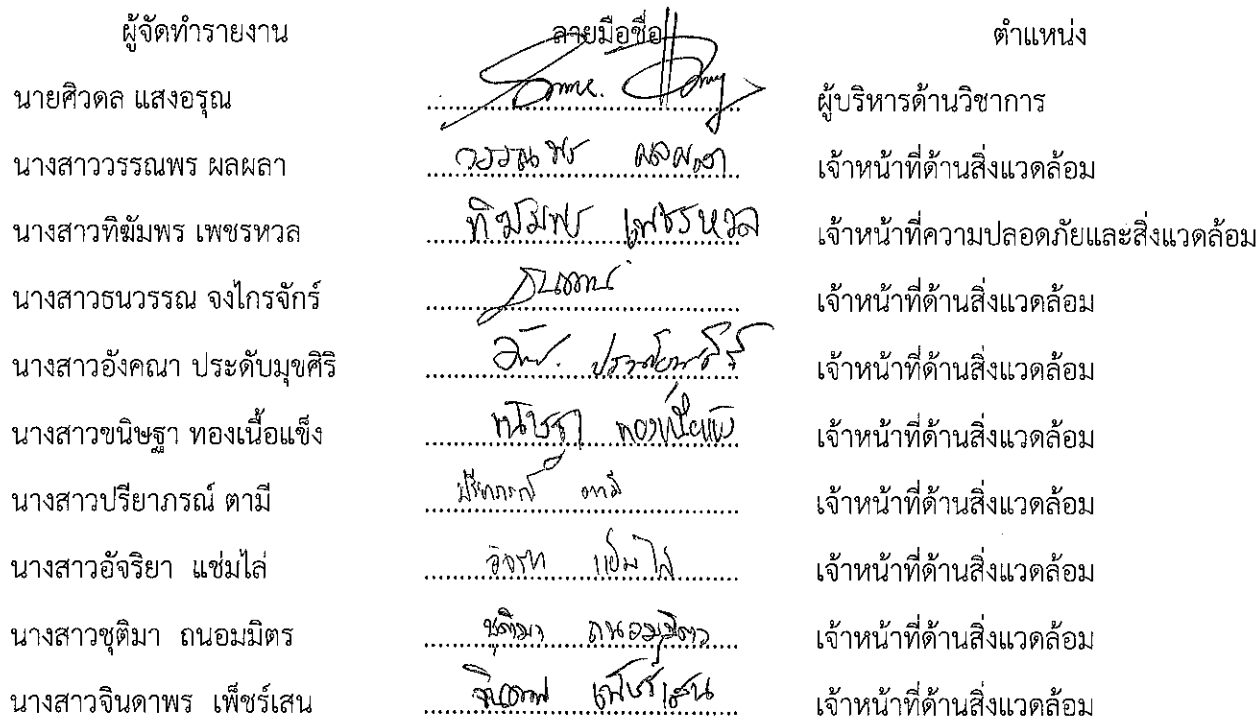 ผู้จัดทำรายงาน ลายมือชื่อ ตำแหน่ง
นายศิวดล แสงอรุณ ผู้บริหารด้านวิชาการ
นางสาววรรณพร ผลผลา วรรณพร ผลผลา เจ้าหน้าที่ด้านสิ่งแวดล้อม
นางสาวทิฆัมพร เพชรหวล ทิฆัมพร เพชรหวล เจ้าหน้าที่ความปลอดภัยและสิ่งแวดล้อม
นางสาวธนวรรณ จงไกรจักร์ ธนวรรณ เจ้าหน้าที่ด้านสิ่งแวดล้อม
นางสาวอังคณา ประดับมุขศิริ เจ้าหน้าที่ด้านสิ่งแวดล้อม
นางสาวขนิษฐา ทองเนื้อแข็ง ขนิษฐา ทองเนื้อแข็ง เจ้าหน้าที่ด้านสิ่งแวดล้อม
นางสาวปรียาภรณ์ ตามี ปรียาภรณ์ ตามี เจ้าหน้าที่ด้านสิ่งแวดล้อม
นางสาวอัจริยา แช่มไล่ อัจริยา แช่มไล่ เจ้าหน้าที่ด้านสิ่งแวดล้อม
นางสาวชุติมา ถนอมมิตร ชุติมา ถนอมมิตร เจ้าหน้าที่ด้านสิ่งแวดล้อม
นางสาวจินดาพร เพ็ชร์เสน จินดาพร เพ็ชร์เสน เจ้าหน้าที่ด้านสิ่งแวดล้อม